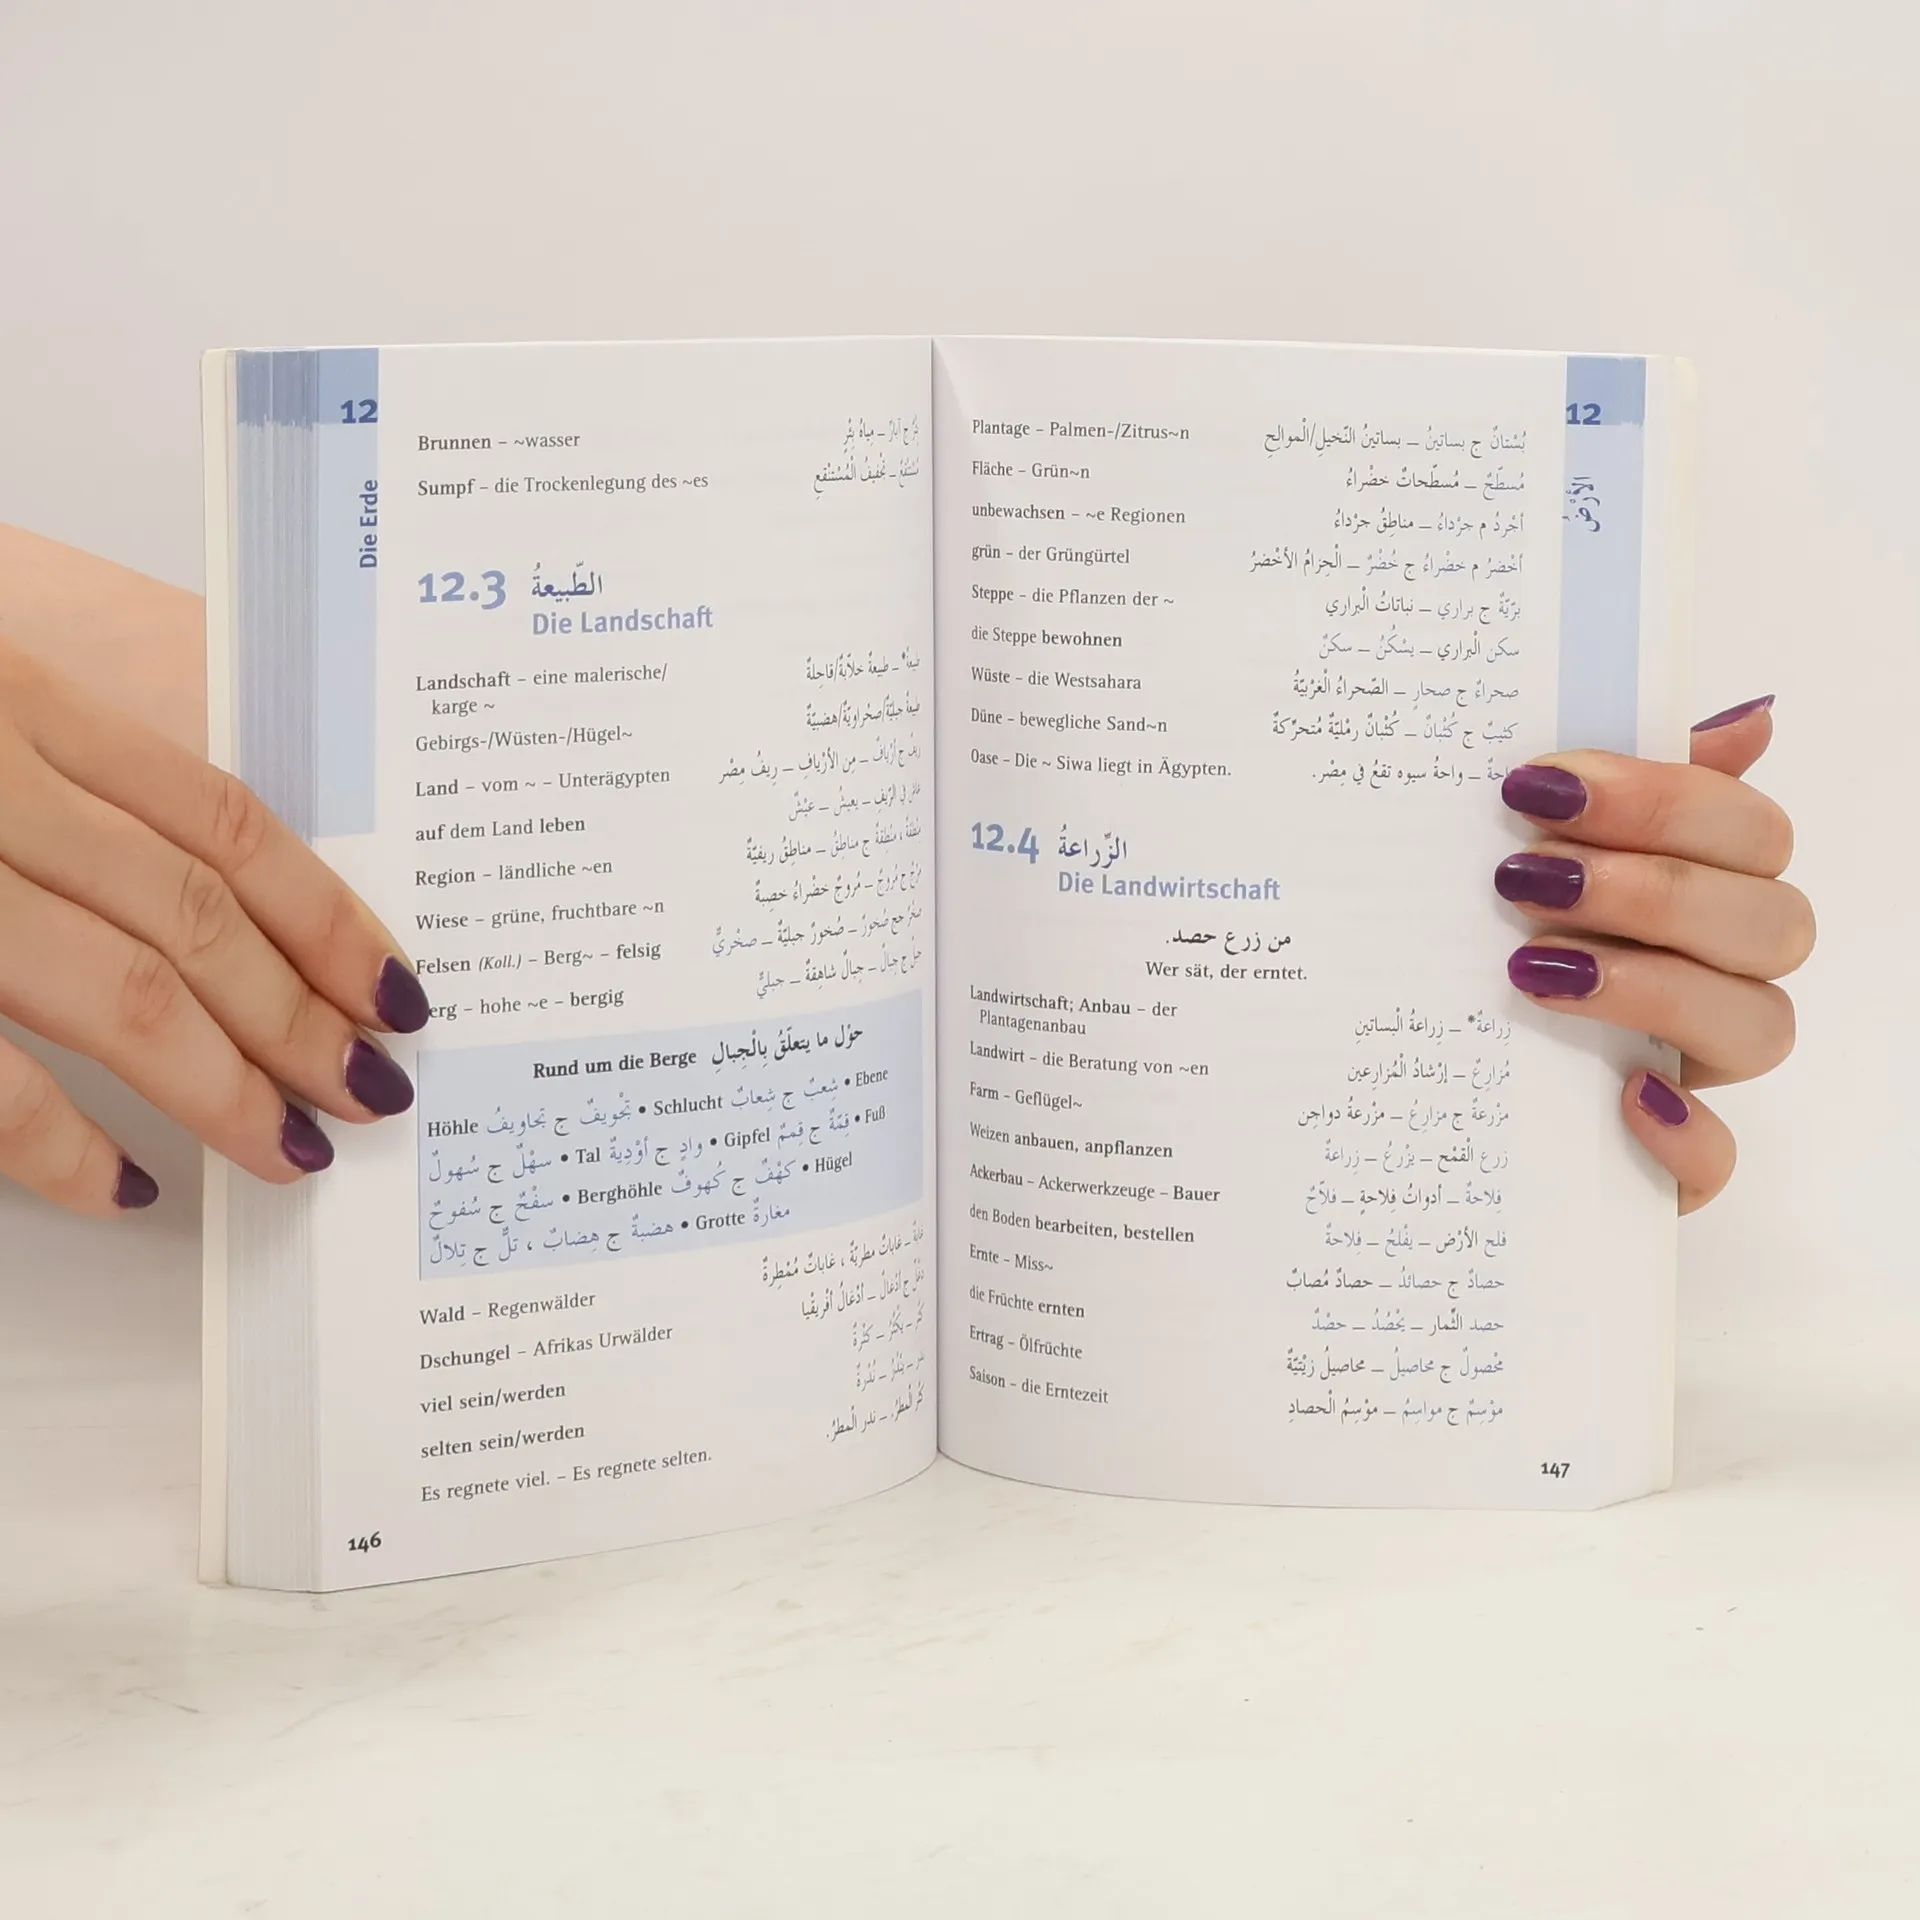 12
Die Erde
Brunnen – ~wasser بِئْرٌ ج آبارٌ – مِياهُ بِئْرٍ
Sumpf – die Trockenlegung des ~es مُسْتنْقعٌ – تجْفيفُ الْمُسْتنْقعِ
12.3 الطّبيعةُ
Die Landschaft
Landschaft – eine malerische/ طبيعةٌ* – طبيعةٌ خلاّبةٌ/قاحِلةٌ
karge ~
Gebirgs-/Wüsten-/Hügel~ طبيعةٌ جبليّةٌ/صحْراويّةٌ/هضبيّةٌ
Land – vom ~ – Unterägypten ريفٌ ج أرْيافٌ – مِن الأرْيافِ – رِيفُ مِصْر
auf dem Land leben عاش في الرّيفِ – يعيشُ – عيْشٌ
Region – ländliche ~en مِنْطقةٌ ، منْطِقةٌ ج مناطِقُ – مناطِقُ ريفيّةٌ
Wiese – grüne, fruchtbare ~n مرْجٌ ج مُروجٌ – مُروجٌ خضْراءُ خصِبةٌ
Felsen (Koll.) – Berg~ – felsig صخْرٌ جج صُخورٌ – صُخورٌ جبليّةٌ – صخْريٌّ
erg – hohe ~e – bergig جبلٌ ج جِبالٌ – جِبالٌ شاهِقةٌ – جبليٌّ
Rund um die Berge حوْل ما يتعلّقُ بِالْجِبالِ
Höhle تجْويفٌ ج تجاويفُ • Schlucht شِعبٌ ج شِعابٌ • Ebene
سهْلٌ ج سُهولٌ • Tal وادٍ ج أوْدِيةٌ • Gipfel قِمّةٌ ج قِممٌ • Fuß
سفْحٌ ج سُفوحٌ • Berghöhle كهْفٌ ج كُهوفٌ • Hügel
هضبةٌ ج هِضابٌ ، تلٌّ ج تِلالٌ • Grotte مغارةٌ
Wald – Regenwälder غابةٌ – غاباتٌ مطريّةٌ ، غاباتٌ مُمْطِرةٌ
Dschungel – Afrikas Urwälder دغْلٌ ج أدْغالٌ – أدْغالُ أفْريقْيا
viel sein/werden كثُر – يكْثُرُ – كثْرةٌ
selten sein/werden ندر – ينْدُرُ – نُدْرةٌ
Es regnete viel. – Es regnete selten. كثُر الْمطرُ. – ندر الْمطرُ.
146
12
الأرْضُ
Plantage – Palmen-/Zitrus~n بُسْتانٌ ج بساتينُ – بساتينُ النّخيلِ/الْموالِحِ
Fläche – Grün~n مُسطّحٌ – مُسطّحاتٌ خضْراءُ
unbewachsen – ~e Regionen أجْردُ م جرْداءُ – مناطِقُ جرْداءُ
grün – der Grüngürtel أخْضرُ م خضْراءُ ج خُضْرٌ – الْحِزامُ الأخْضرُ
Steppe – die Pflanzen der ~ برّيّةٌ ج براري – نباتاتُ الْبراري
die Steppe bewohnen سكن الْبراري – يسْكُنُ – سكنٌ
Wüste – die Westsahara صحراءُ ج صحارٍ – الصّحراءُ الْغرْبيّةُ
Düne – bewegliche Sand~n كثيبٌ ج كُثْبانٌ – كُثْبانٌ رمْليّةٌ مُتحرّكةٌ
Oase – Die ~ Siwa liegt in Ägypten. احةٌ – واحةُ سيوه تقعُ في مِصْر.
12.4 الزِّراعةُ
Die Landwirtschaft
من زرع حصد.
Wer sät, der erntet.
Landwirtschaft; Anbau – der زِراعةٌ* – زِراعةُ الْبساتينِ
Plantagenanbau
Landwirt – die Beratung von ~en مُزارِعٌ – إرْشادُ الْمُزارِعين
Farm – Geflügel~ مزْرعةٌ ج مزارِعُ – مزْرعةُ دواجِن
Weizen anbauen, anpflanzen زرع الْقمْح – يزْرعُ – زِراعةٌ
Ackerbau – Ackerwerkzeuge – Bauer فِلاحةٌ – أدواتُ فِلاحةٍ – فلاّحٌ
den Boden bearbeiten, bestellen فلح الأرْض – يفْلحُ – فِلاحةٌ
Ernte – Miss~ حصادٌ ج حصائدُ – حصادٌ مُصابٌ
die Früchte ernten حصد الثِّمار – يحْصُدُ – حصْدٌ
Ertrag – Ölfrüchte محْصولٌ ج محاصيلُ – محاصيلُ زيْتيّةٌ
Saison – die Erntezeit موْسِمٌ ج مواسِمُ – موْسِمُ الْحصادِ
147